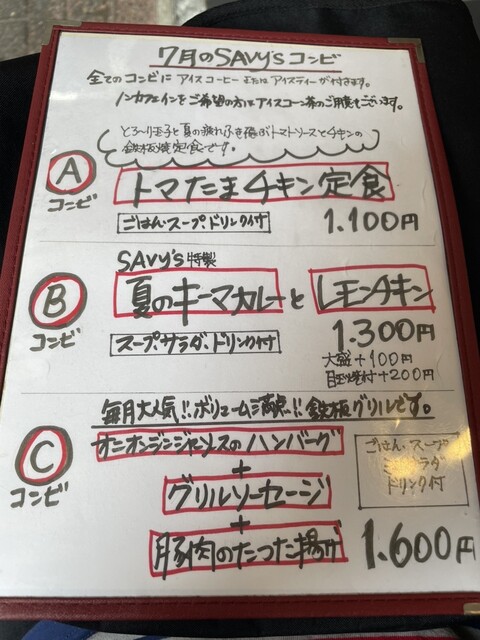 7月のSAVy'sコンビ
全てのコンビに アイスコーヒー または アイスティーが付きます。
ノンカフェインをご希望の方はアイスコーン茶のご用意もございます。
とろ〜り玉子と夏の疲れふき飛ぶトマトソースとチキンの
鉄板焼定食です。
A
コンビ
トマたまチキン定食
ごはん・スープ、ドリンク付
1.100円
SAVy's特製
B
コンビ
夏のキーマカレーと レモンチキン
スープ、サラダ、ドリンク付
1.300円
大盛+100円
目玉焼付+200円
毎月大人気!!ボリューム満点!!鉄板グリルです。
C
コンビ
オニオンジンジャーソースのハンバーグ
+
グリルソーセージ
+
豚肉のたつた揚げ
ごはん・スープ
ミニサラダ
ドリンク付
1.600円